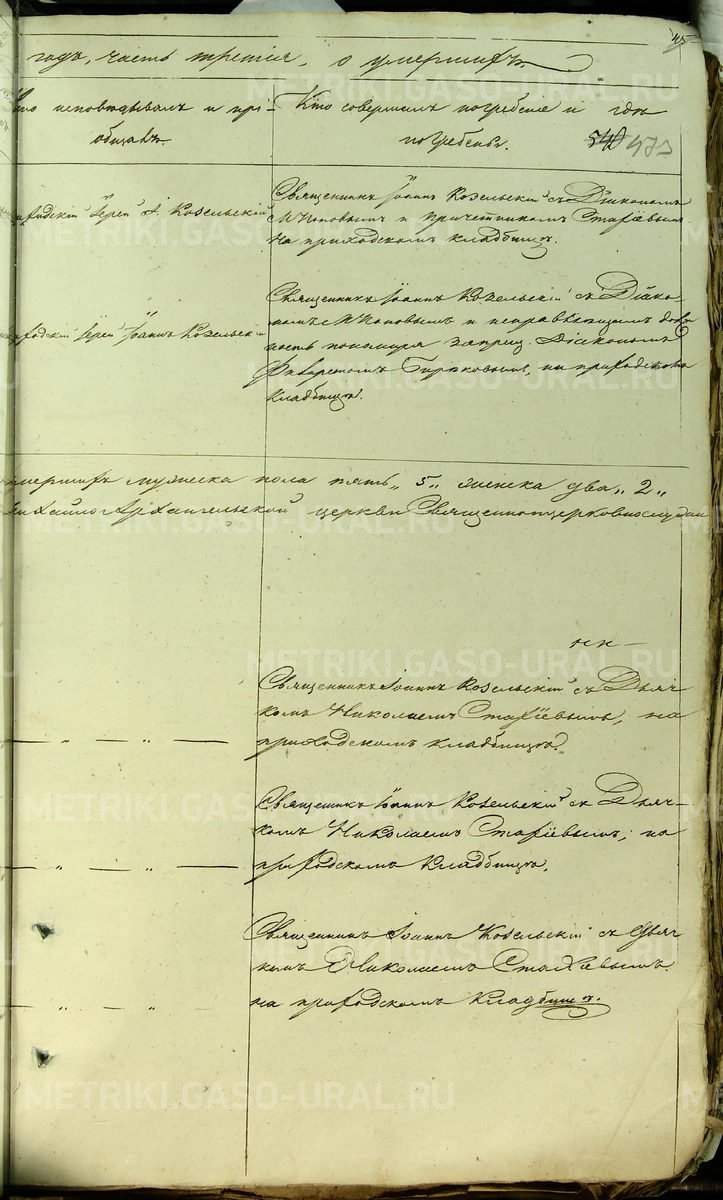 годъ, часть третія, о умершихъ.
Кто исповѣдывалъ и прі-
общалъ.
Кто совершалъ погребеніе и гдѣ
погребены.
540 473
Іерей І. Козельскій
Священникъ Іоаннъ Козельскій съ Діакономъ
Поповымъ и причетникомъ Стахіевымъ
на приходскомъ кладбищѣ.
Іерей Іоаннъ Козельскій
Священникъ Іоаннъ Козельскій съ Діако-
номъ Поповымъ и исправляющимъ долж
ность пономаря запрещ. Діакономъ
Филаретомъ Бирюковымъ, на приходскомъ
кладбищѣ.
умершихъ мужеска пола пять „ 5 „ женска два „ 2 „
Михайло Архангельской церкви Священноцерковнослужи
Священникъ Іоаннъ Козельскій съ Дьяч
комъ Николаемъ Стахіевымъ, на
приходскомъ кладбищѣ.
Священникъ Іоаннъ Козельскій съ Дьяч-
комъ Николаемъ Стахіевымъ, на
приходскомъ кладбищѣ.
Священникъ Іоаннъ Козельскій съ Дьяч
комъ Николаемъ Стахіевымъ
на приходскомъ кладбищѣ.
METRIKI.GASO-URAL.RU